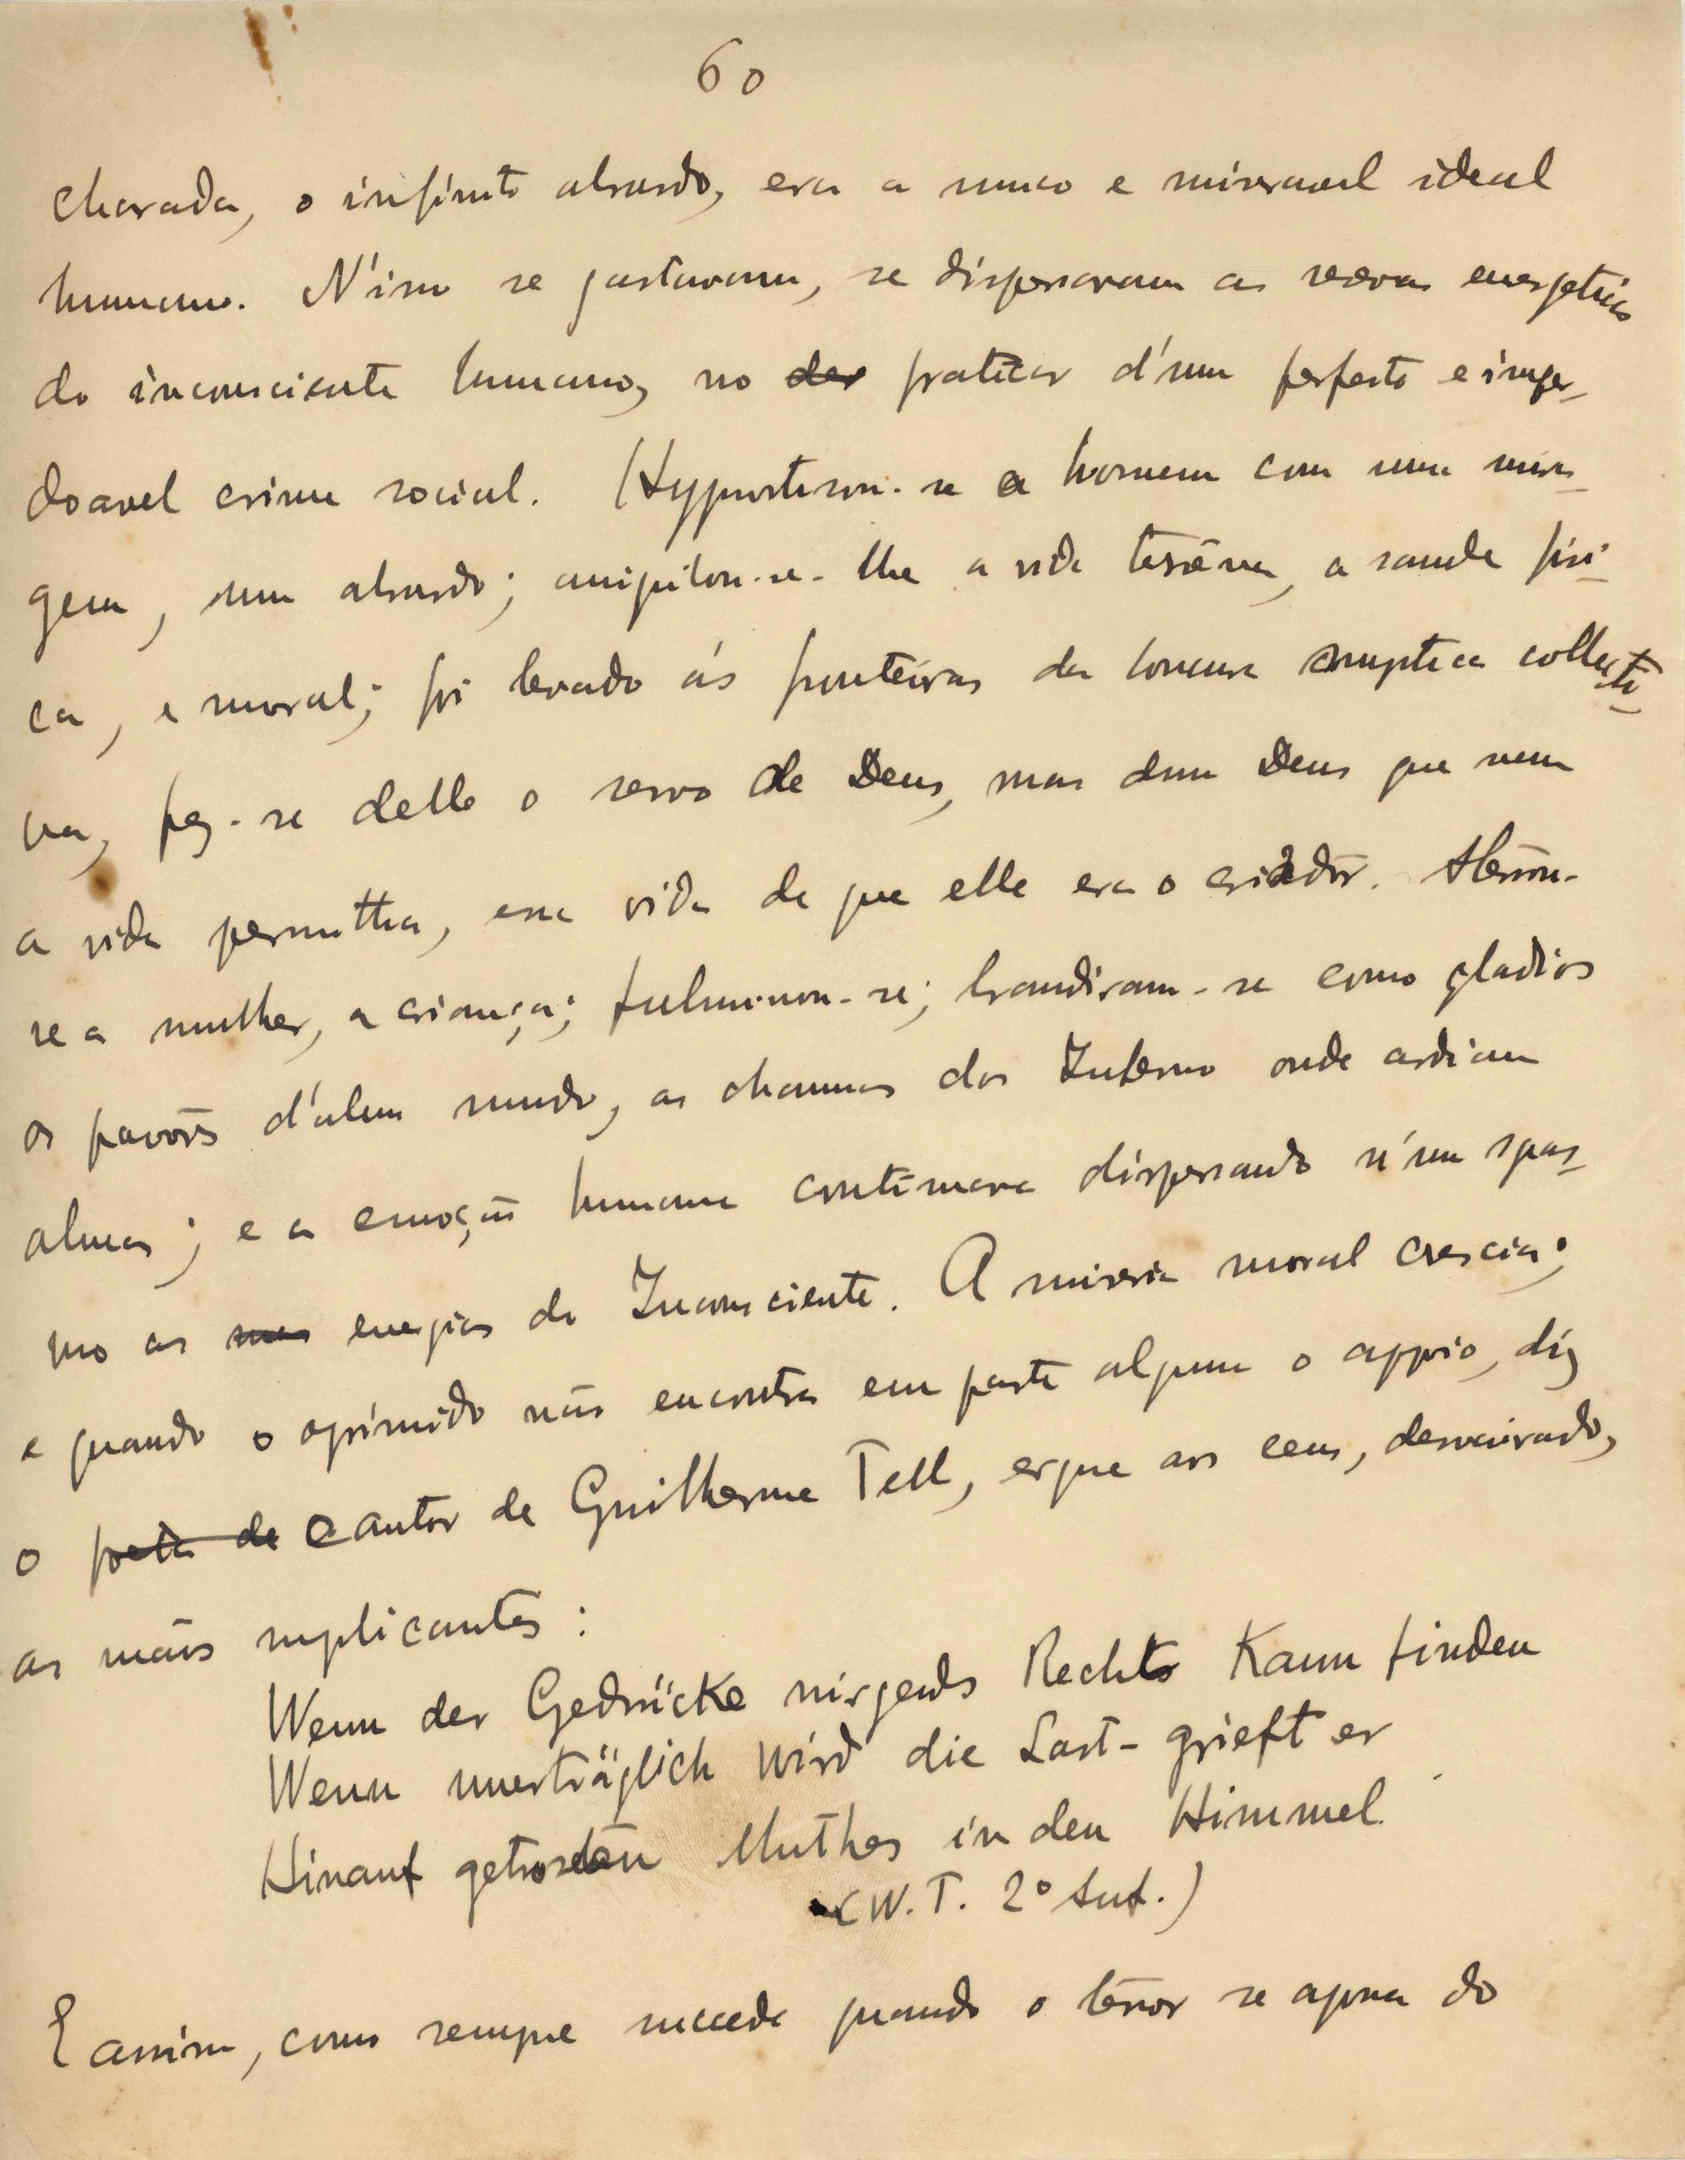 60
charada, o infinito absurdo, era a unico e miseravel ideal
humano. N'isso se gastavam, se dispersavam as reservas energeticas
do inconsciente humano, no der praticar d'um perfeito e imper-
doavel crime social. Hypnotisou-se o homem com uma mira-
gem, um absurdo; aniquilou-se-lhe a vida terrena, a saude fisi-
ca, e moral; foi levado ás fronteiras da loucura mystica collecti-
va, fez-se delle o servo de Deus, mas dum Deus que nem
a vida permittia, essa vida de que elle era o criador. Aterrou-
se a mulher, a criança; fulminou-se; brandiram-se como gladios
os pavores d'alem mundo, as chammas dos Inferno onde ardiam
almas; e a emoção humana continuava dispersando n'um spas-
mo as suas energias do Inconsciente. A miseria moral crescia;
e quando o oprimido não encontra em parte alguma o appoio, diz
o poeta de cantor de Guilherme Tell, ergue aos ceus, desvairado,
as mãos supplicantes:
Wenn der Gedrücke nirgends Rechts Kann finden
Wenn unerträglich wird die Last - grieft er
Hinauf getrosten Muthes in den Himmel.
(W. T. 2º Auf.)
E assim, como sempre succede quando o terror se apossa do